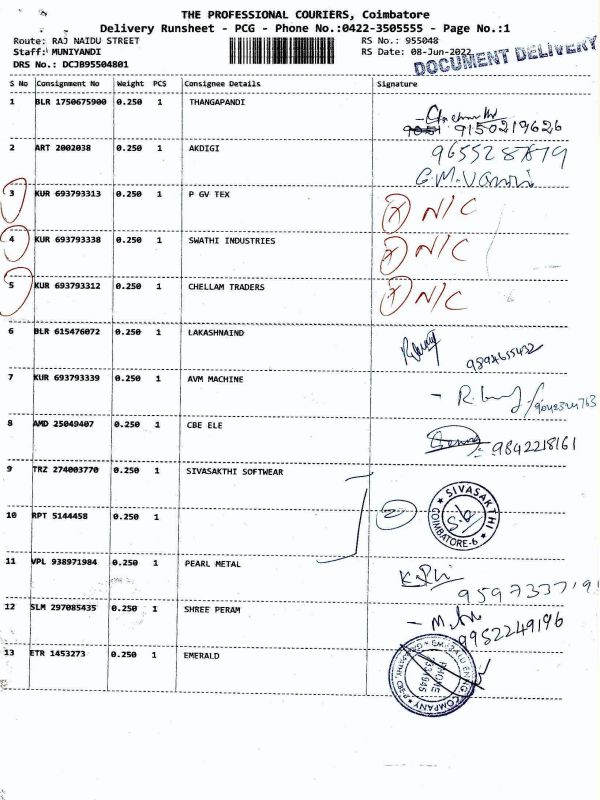 THE PROFESSIONAL COURIERS, Coimbatore
Delivery Runsheet - PCG - Phone No.:0422-3505555 - Page No.:1
Route: RAJ NAIDU STREET RS No.: 955048
Staff: MUNIYANDI RS Date: 08-Jun-2022
DRS No.: DCJB95504801 DOCUMENT DELIVERY
S No Consignment No Weight PCS Consignee Details Signature
1 BLR 1750675900 0.250 1 THANGAPANDI
9150219626
2 ART 2002038 0.250 1 AKDIGI
G.M.Vanni
3 KUR 693793313 0.250 1 P GV TEX N/C
4 KUR 693793338 0.250 1 SWATHI INDUSTRIES N/C
5 KUR 693793312 0.250 1 CHELLAM TRADERS N/C
6 BLR 615476072 0.250 1 LAKASHNAIND
9894655432
7 KUR 693793339 0.250 1 AVM MACHINE
8 AMD 25049407 0.250 1 CBE ELE 9842218161
9 TRZ 274003770 0.250 1 SIVASAKTHI SOFTWEAR
10 RPT 5144458 0.250 1 2 SIVASAKTHI COIMBATORE-6
11 VPL 938971984 0.250 1 PEARL METAL
12 SLM 297085435 0.250 1 SHREE PERAM
9952249196
13 ETR 1453273 0.250 1 EMERALD
PHONE
COMPANY